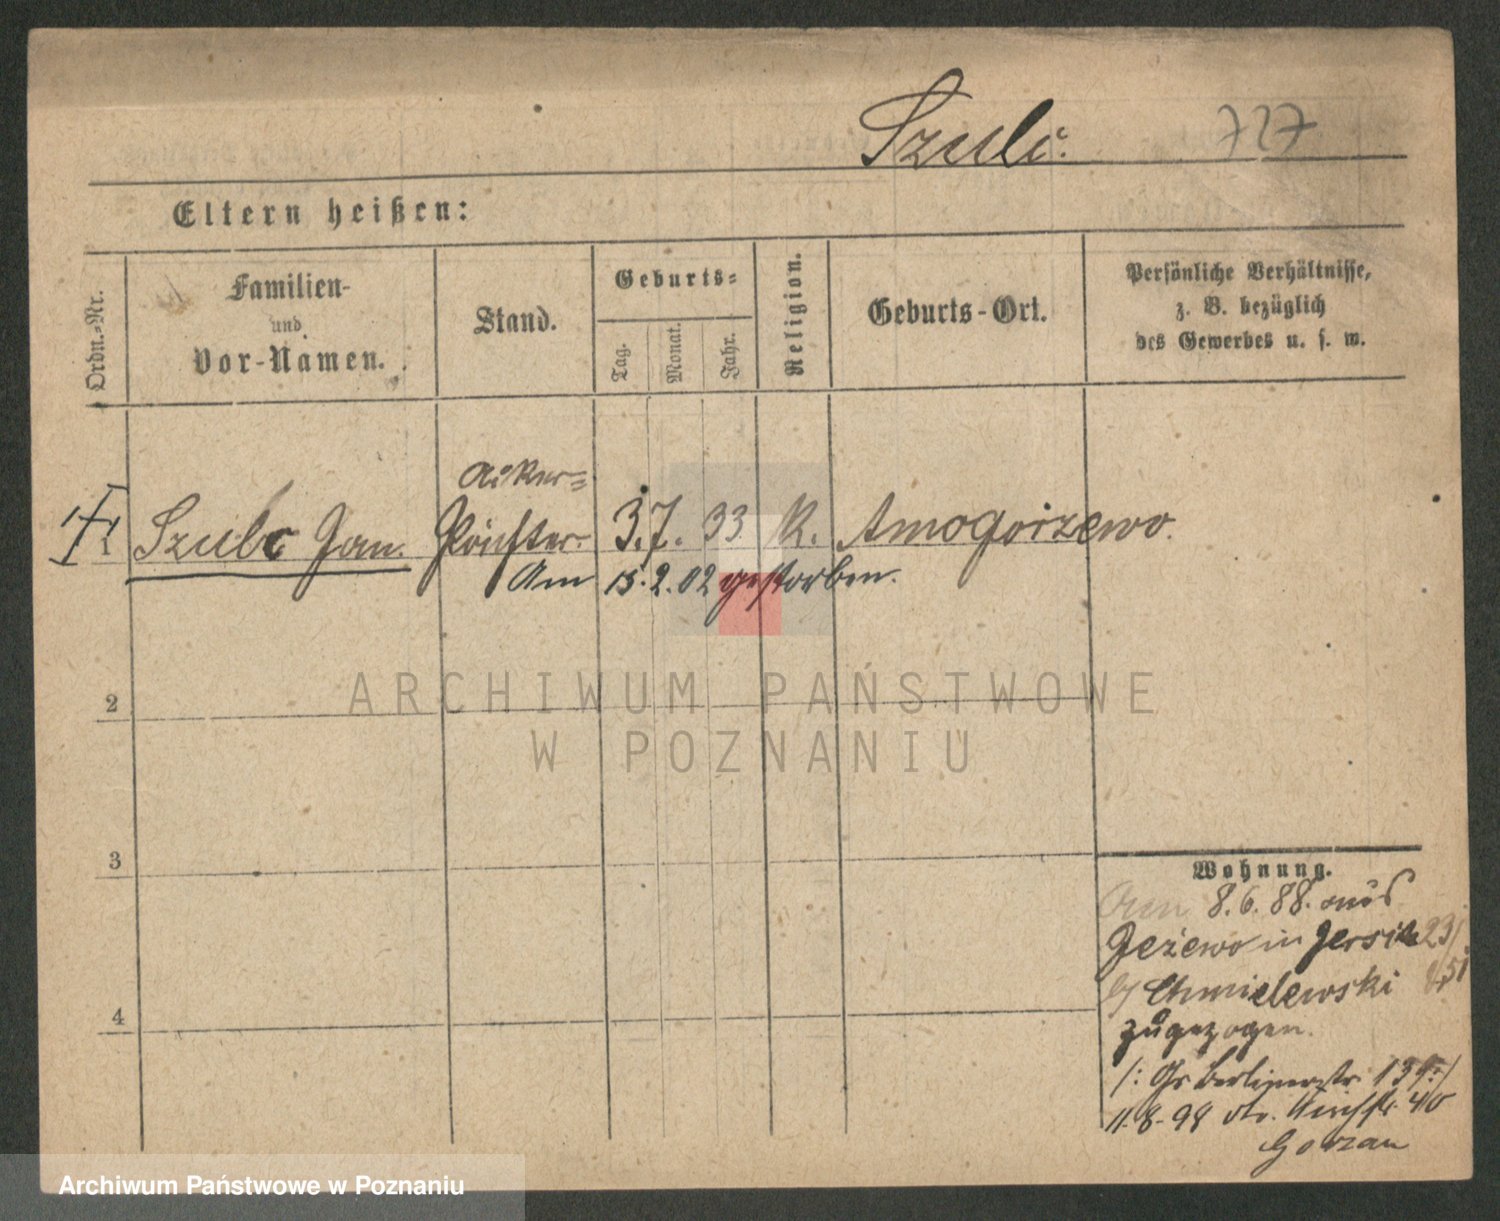 Szulc. 727
Eltern heißen:
Ordn.-Nr.
Familien-
und
Vor-Namen.
Stand.
Geburts-
Tag.
Monat.
Jahr.
Religion.
Geburts-Ort.
Persönliche Verhältnisse,
z. B. bezüglich
des Gewerbes u. s. w.
Acker-
1 Szulc Jan. Pächter. 3. 7. 33 K. Amogorzewo.
Am 15. 2. 02 gestorben.
2
ARCHIWUM PAŃSTWOWE
W POZNANIU
3
4
Wohnung.
Am 8. 6. 88. aus
Jeżewo in Jersitz 23/
b/ Chmielewski
zugezogen.
/: Gr Berlinerstr. 139 :/
11. 8. 98 Kirchstr. 40
Gorzan
Archiwum Państwowe w Poznaniu